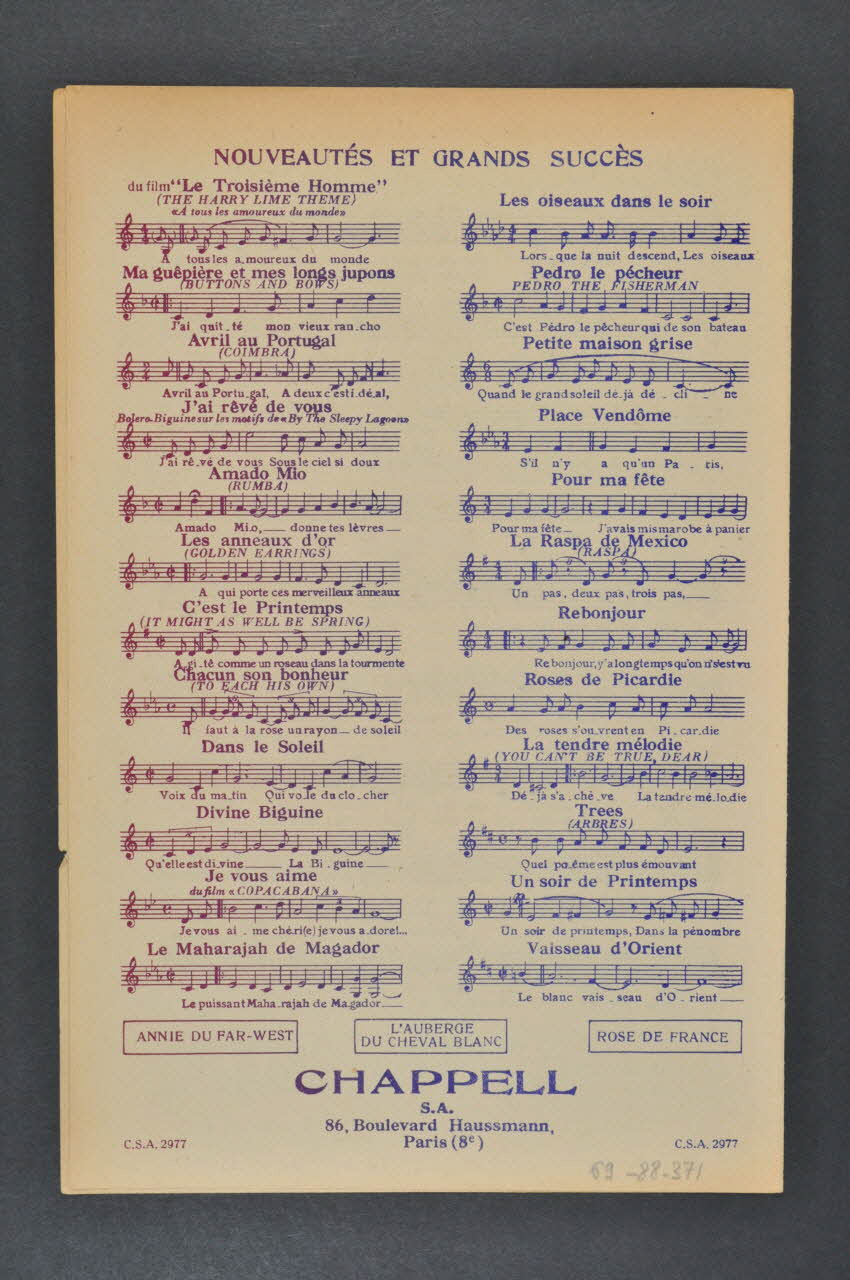 NOUVEAUTÉS ET GRANDS SUCCÈS
du film "Le Troisième Homme"
(THE HARRY LIME THEME)
«A tous les amoureux du monde»
A tous les a_moureux du monde
Ma guêpière et mes longs jupons
(BUTTONS AND BOWS)
J'ai quit_té mon vieux ran_cho
Avril au Portugal
(COIMBRA)
Avril au Portu_gal, A deux c'est i_dé_al,
J'ai rêvé de vous
Bolero-Biguine sur les motifs de «By The Sleepy Lagoon»
J'ai rê_vé de vous Sous le ciel si doux
Amado Mio
(RUMBA)
Amado Mi_o, ___ donne tes lèvres ___
Les anneaux d'or
(GOLDEN EARRINGS)
A qui porte ces merveilleux anneaux
C'est le Printemps
(IT MIGHT AS WELL BE SPRING)
A_gi_té comme un roseau dans la tourmente
Chacun son bonheur
(TO EACH HIS OWN)
Il faut à la rose un rayon ___ de soleil
Dans le Soleil
Voix du ma_tin Qui vo_le du clo_cher
Divine Biguine
Qu'elle est di_vine ___ La Bi_guine ___
Je vous aime
du film «COPACABANA»
Je vous ai_me ché_ri(e) je vous a_dore!...
Le Maharajah de Magador
Le puissant Maha_rajah de Ma_gador ___
Les oiseaux dans le soir
Lors_que la nuit descend, Les oiseaux
Pedro le pécheur
PEDRO THE FISHERMAN
C'est Pédro le pêcheur qui de son bateau
Petite maison grise
Quand le grand soleil dé_jà dé_cli_ne
Place Vendôme
S'il n'y a qu'un Pa_ris,
Pour ma fête
Pour ma fête _ J'avais mis ma robe à panier
La Raspa de Mexico
(RASPA)
Un pas, deux pas, trois pas, ___
Rebonjour
Rebonjour, y'a longtemps qu'on n's'est vu
Roses de Picardie
Des roses s'ou_vrent en Pi_car_die
La tendre mélodie
(YOU CAN'T BE TRUE, DEAR)
Dé_jà s'a_chè_ve La tendre mé_lo_die
Trees
(ARBRES)
Quel po_ême est plus émouvant
Un soir de Printemps
Un soir de printemps, Dans la pénombre
Vaisseau d'Orient
Le blanc vais_seau d'O_rient ___
ANNIE DU FAR-WEST
L'AUBERGE
DU CHEVAL BLANC
ROSE DE FRANCE
CHAPPELL
S.A.
86, Boulevard Haussmann,
Paris (8e)
C.S.A. 2977
C.S.A. 2977
69-88-371